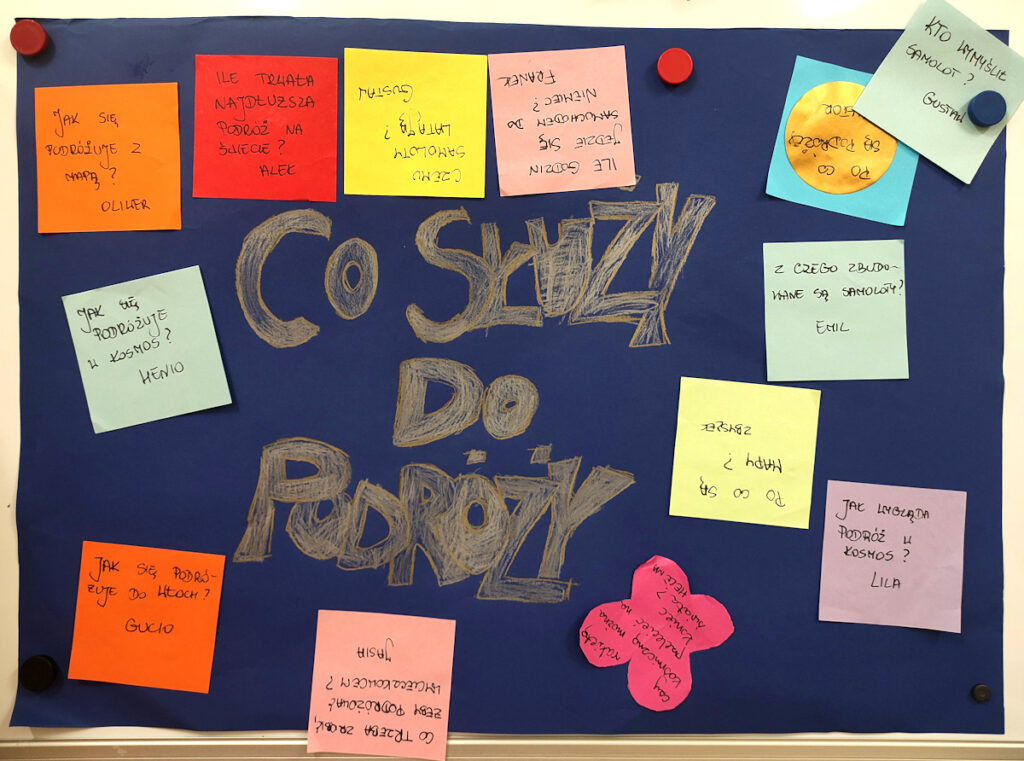 CO SŁUŻY
DO
PODRÓŻY
JAK SIĘ
PODRÓŻUJE Z
MAPĄ?
OLIWER
ILE TRWAŁA
NAJDŁUŻSZA
PODRÓŻ NA
ŚWIECIE?
ALEK
CZEMU
SAMOLOTY
LATAJĄ?
GUSTAW
ILE GODZIN
JEDZIE SIĘ
SAMOCHODEM DO
NIEMEC?
FRANEK
PO CO
SĄ PODRÓŻE?
KTO WYMYŚLIŁ
SAMOLOT?
GUSTAW
JAK SIĘ
PODRÓŻUJE
W KOSMOS?
HENIO
Z CZEGO ZBUDO-
WANE SĄ SAMOLOTY?
EMIL
PO CO SĄ
MAPY?
ZBYSZEK
JAK WYGLĄDA
PODRÓŻ W
KOSMOS?
LILA
JAK SIĘ PODRÓ-
ŻUJE DO WŁOCH?
GUCIO
CO TRZEBA ZROBIĆ,
ŻEBY PODRÓŻOWAĆ
WYCIECZKOWCEM?
JASIA
czy rakietą
kosmiczną można
polecieć na
koniec
świata?